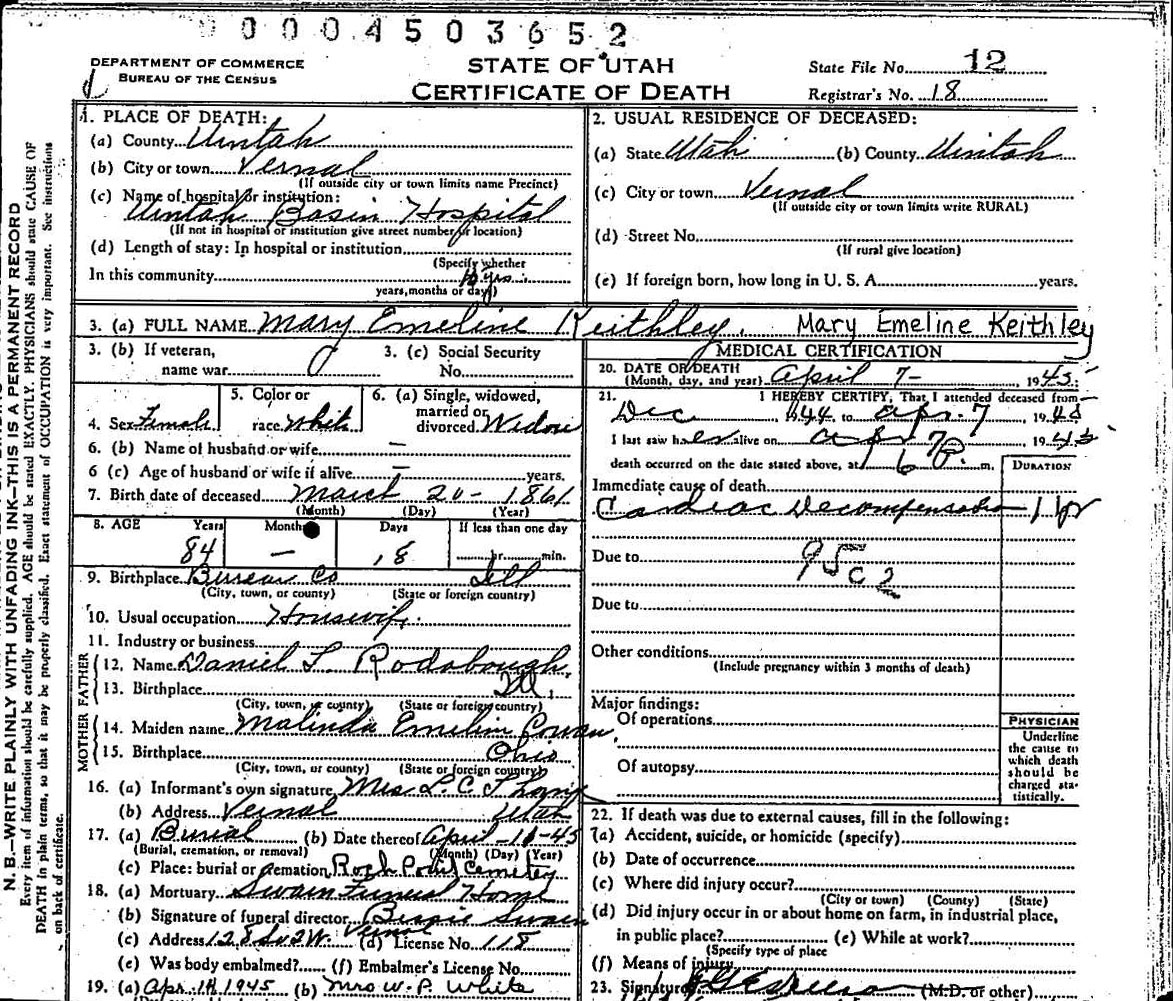 0004503652
DEPARTMENT OF COMMERCE
BUREAU OF THE CENSUS
STATE OF UTAH
CERTIFICATE OF DEATH
State File No. 12
Registrar's No. 18
N. B.—WRITE PLAINLY WITH UNFADING INK—THIS IS A PERMANENT RECORD
Every item of information should be carefully supplied. AGE should be stated EXACTLY. PHYSICIANS should state CAUSE OF
DEATH in plain terms, so that it may be properly classified. Exact statement of OCCUPATION is very important. See instructions
on back of certificate.
1. PLACE OF DEATH:
(a) County Uintah
(b) City or town Vernal
(If outside city or town limits name Precinct)
(c) Name of hospital or institution:
Uintah Basin Hospital
(If not in hospital or institution give street number or location)
(d) Length of stay: In hospital or institution
(Specify whether
In this community yrs.
years, months or days)
2. USUAL RESIDENCE OF DECEASED:
(a) State Utah (b) County Uintah
(c) City or town Vernal
(If outside city or town limits write RURAL)
(d) Street No.
(If rural give location)
(e) If foreign born, how long in U. S. A. years.
3. (a) FULL NAME Mary Emeline Keithley. Mary Emeline Keithley
3. (b) If veteran, name war 3. (c) Social Security No.
4. Sex Female 5. Color or race White 6. (a) Single, widowed, married or divorced Widow
6. (b) Name of husband or wife —
6 (c) Age of husband or wife if alive — years.
7. Birth date of deceased March 20 - 1861
(Month) (Day) (Year)
8. AGE Years Months Days If less than one day
84 — 18 hr. min.
9. Birthplace Bureau Co Ill
(City, town, or county) (State or foreign country)
10. Usual occupation Housewife
11. Industry or business
FATHER
12. Name Daniel L Rodabough
13. Birthplace Ill.
(City, town, or county) (State or foreign country)
MOTHER
14. Maiden name Malinda Emelin Cowan
15. Birthplace Ohio
(City, town, or county) (State or foreign country)
16. (a) Informant's own signature Mrs L. C. Thorne
(b) Address Vernal Utah
17. (a) Burial (b) Date thereof April - 11-45
(Burial, cremation, or removal) (Month) (Day) (Year)
(c) Place: burial or cremation Rock Point Cemetery
18. (a) Mortuary Swain Funeral Home
(b) Signature of funeral director Bessie Swain
(c) Address 128 So 2 W. Vernal (d) License No. 118
(e) Was body embalmed? (f) Embalmer's License No.
19. (a) Apr. 1945 (b) Mrs W. P. White
MEDICAL CERTIFICATION
20. DATE OF DEATH
(Month, day, and year) April 7 - , 1945
21. I HEREBY CERTIFY, That I attended deceased from
Dec 1944 to Apr. 7 1945
I last saw her alive on Apr 7 1945
death occurred on the date stated above, at 6 P. m.
DURATION
Immediate cause of death
Cardiac Decompensation 1 yr
Due to
95c2
Due to
Other conditions
(Include pregnancy within 3 months of death)
Major findings:
Of operations
Of autopsy
PHYSICIAN
Underline
the cause to
which death
should be
charged sta-
tistically.
22. If death was due to external causes, fill in the following:
(a) Accident, suicide, or homicide (specify)
(b) Date of occurrence
(c) Where did injury occur?
(City or town) (County) (State)
(d) Did injury occur in or about home on farm, in industrial place,
in public place? (e) While at work?
(Specify type of place
(f) Means of injury
23. Signature (M.D. or other)